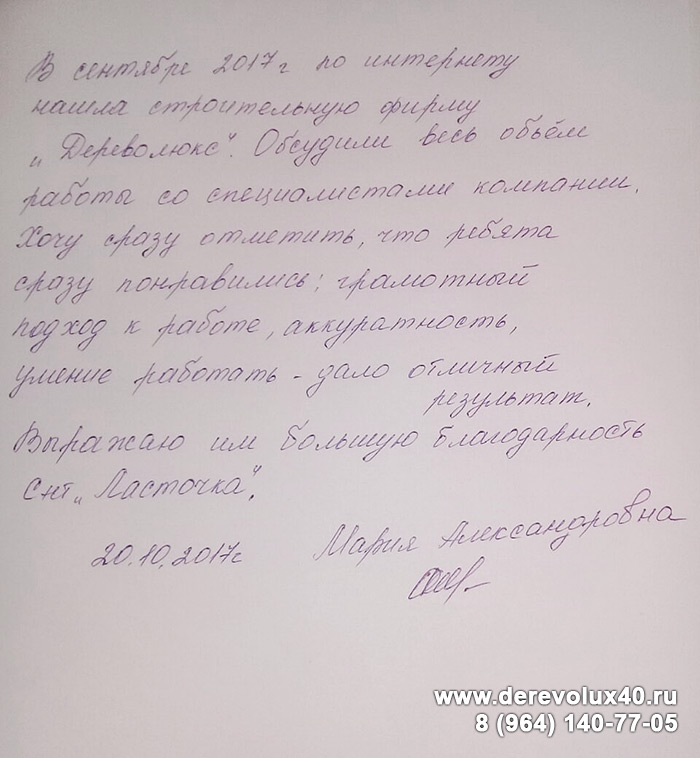 В сентябре 2017 г по интернету
нашла строительную фирму
„Дереволюкс". Обсудили весь объём
работы со специалистами компании.
Хочу сразу отметить, что ребята
сразу понравились; грамотный
подход к работе, аккуратность,
умение работать - дало отличный
результат.
Выражаю им большую благодарность
Снт „Ласточка".
20.10.2017г
Мария Александровна
www.derevolux40.ru
8 (964) 140-77-05